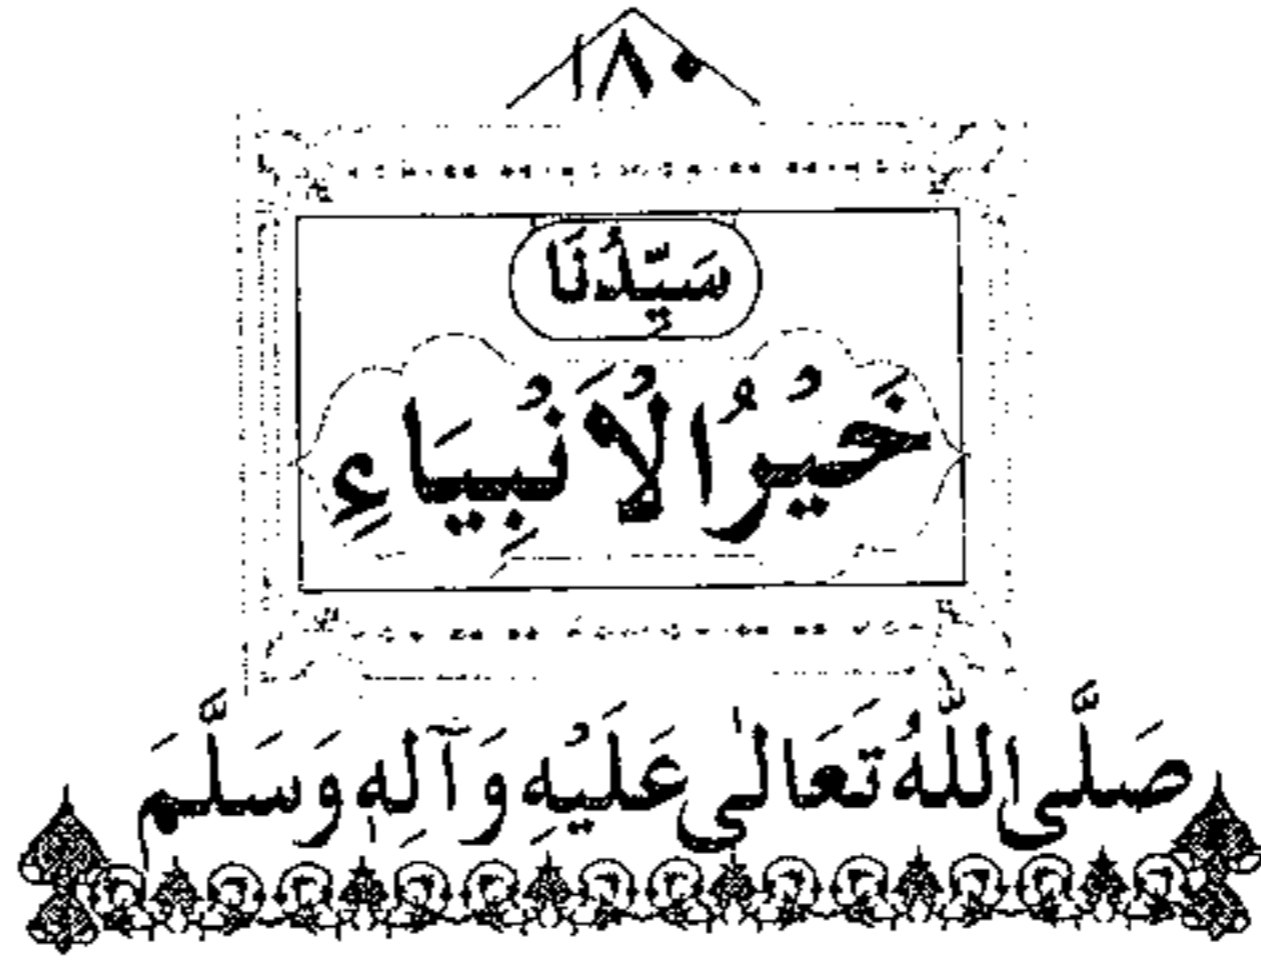 ١٨٠
سَيِّدُنَا
خَيْرُ الْاَنْبِيَاءِ
صَلَّى اللّٰهُ تَعَالٰى عَلَيْهِ وَآلِهٖ وَسَلَّمَ